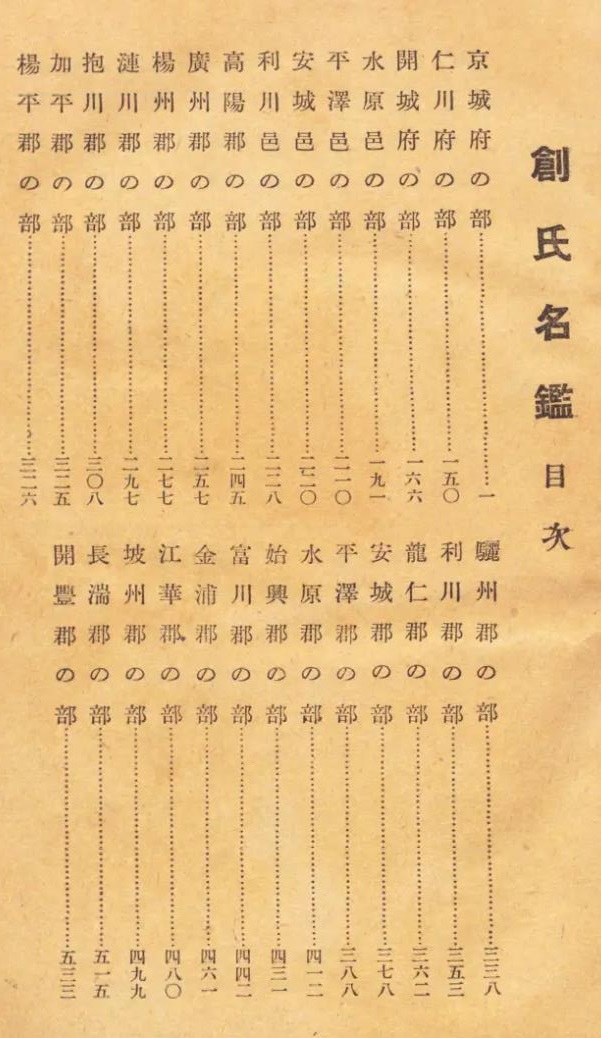 創氏名鑑 目次
京城府の部………一
仁川府の部………一五〇
開城府の部………一六六
水原邑の部………一九一
平澤邑の部………二一〇
安城邑の部………二二〇
利川邑の部………二二八
高陽郡の部………二四五
廣州郡の部………二五七
楊州郡の部………二七七
漣川郡の部………二九七
抱川郡の部………三〇八
加平郡の部………三二五
楊平郡の部………三二六
驪州郡の部………三三八
利川郡の部………三五三
龍仁郡の部………三六二
安城郡の部………三七八
平澤郡の部………三八八
水原郡の部………四一二
始興郡の部………四三一
富川郡の部………四四二
金浦郡の部………四六一
江華郡の部………四八〇
坡州郡の部………四九九
長湍郡の部………五一五
開豐郡の部………五三三